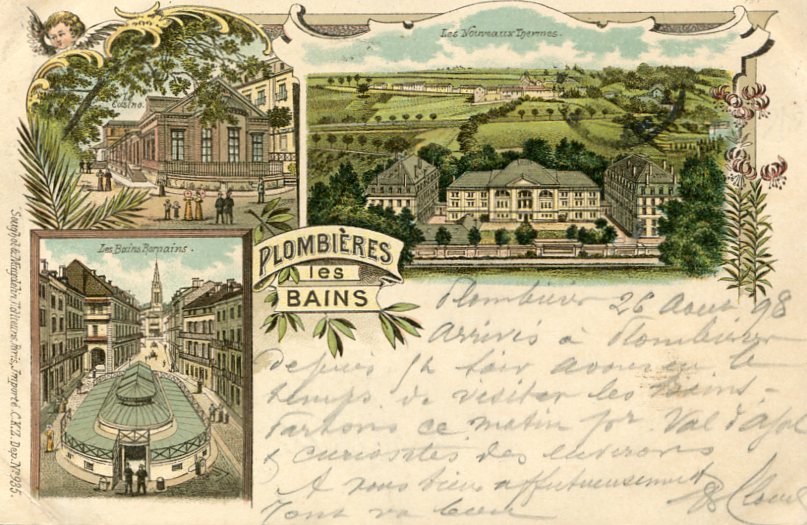 Les Nouveaux Thermes.
Casino.
Les Bains Romains.
PLOMBIÈRES
les
BAINS
Plombières 26 Août 98
Arrivés à Plombières
depuis hier soir avons eu le
temps de visiter les bains -
Partons ce matin pr. Val d'Ajol
& curiosités des environs
A vous bien affectueusement
Tout va bien
Dep. No 935.